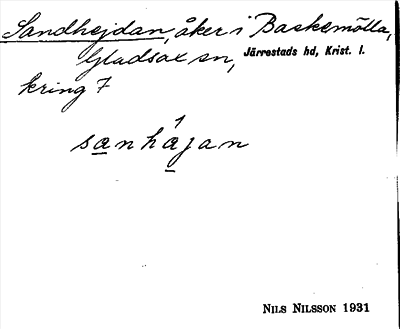 Sandhejdan, åker i Baskemölla,
Gladsax sn, Järrestads hd, Krist. l.
kring 7
sanhajan
NILS NILSSON 1931